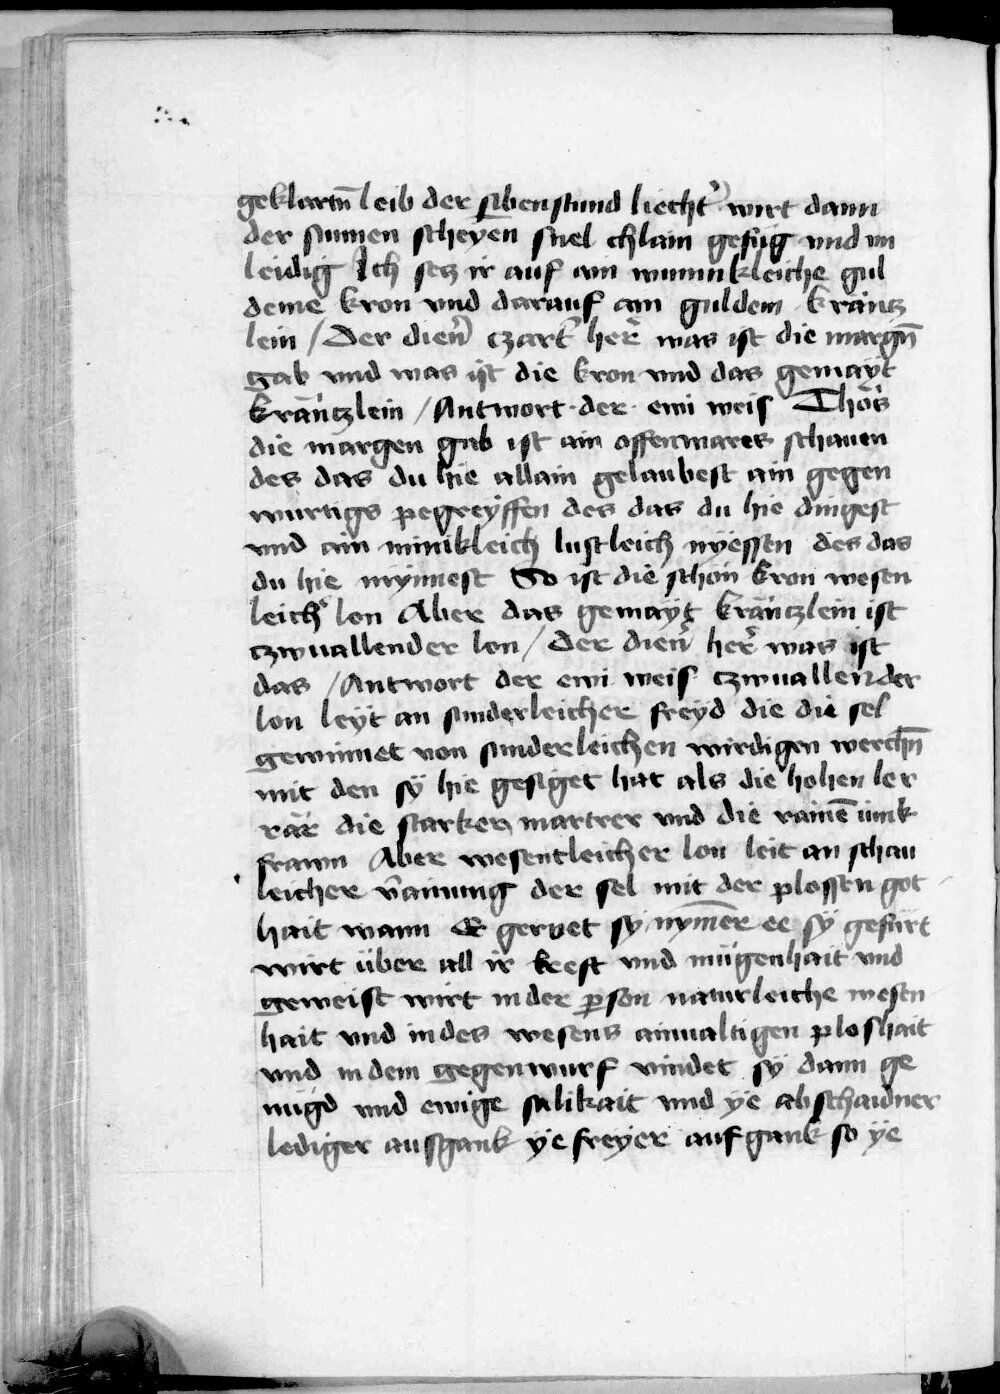 geklartn̄ leib der sibenstund liecht' wirt dann
der sunnen scheyen snel chlain gefüg vnd vn
leidig Ich secz ir auf ain wunnikleiche gul
deine kron vnd darauf ain guldein kräncz
lein / Der dien̄ czart' her̄ was ist die margn̄
gab vnd was ist die kron vnd das gemayt
kränczlein / Antwort der ewi weis Thös
die margen gab ist ain offenwares schauen
des das du hie allain gelaubest ain gegen
wurtigs pegreyffen des das du hie dingest
vnd ain minikleich lustleich nyessen des das
du hie mynnest So ist die schön kron wesen
leich' lon Aber das gemayt kränczlein ist
czwuallender lon / Der dien̄ her̄ was ist
das / Antwort der ewi weis czwuallender
lon leyt an sunderleicher freyd die die sel
gewinnet von sunderleichen wirdigen werchn̄
mit den sy hie gesiget hat als die hohen ler
rär die starken martrer vnd die rainē iunk
frawn Aber wesentleicher lon leit an schau
leicher v̄ainung der sel mit der plossen got
hait wann Er geruet sy nym̄er ee sy gefürt
wirt über all ir krefft vnd mügenhait vnd
geweist wirt in der p̲son naturleiche wesen
hait vnd in des wesens ainualtigen ploshait
vnd in dem gegenwurf vindet sy dann ge
nügd vnd ewige sälikait vnd ye abschaidner
lediger ausgank ye freyer aufgank so ye